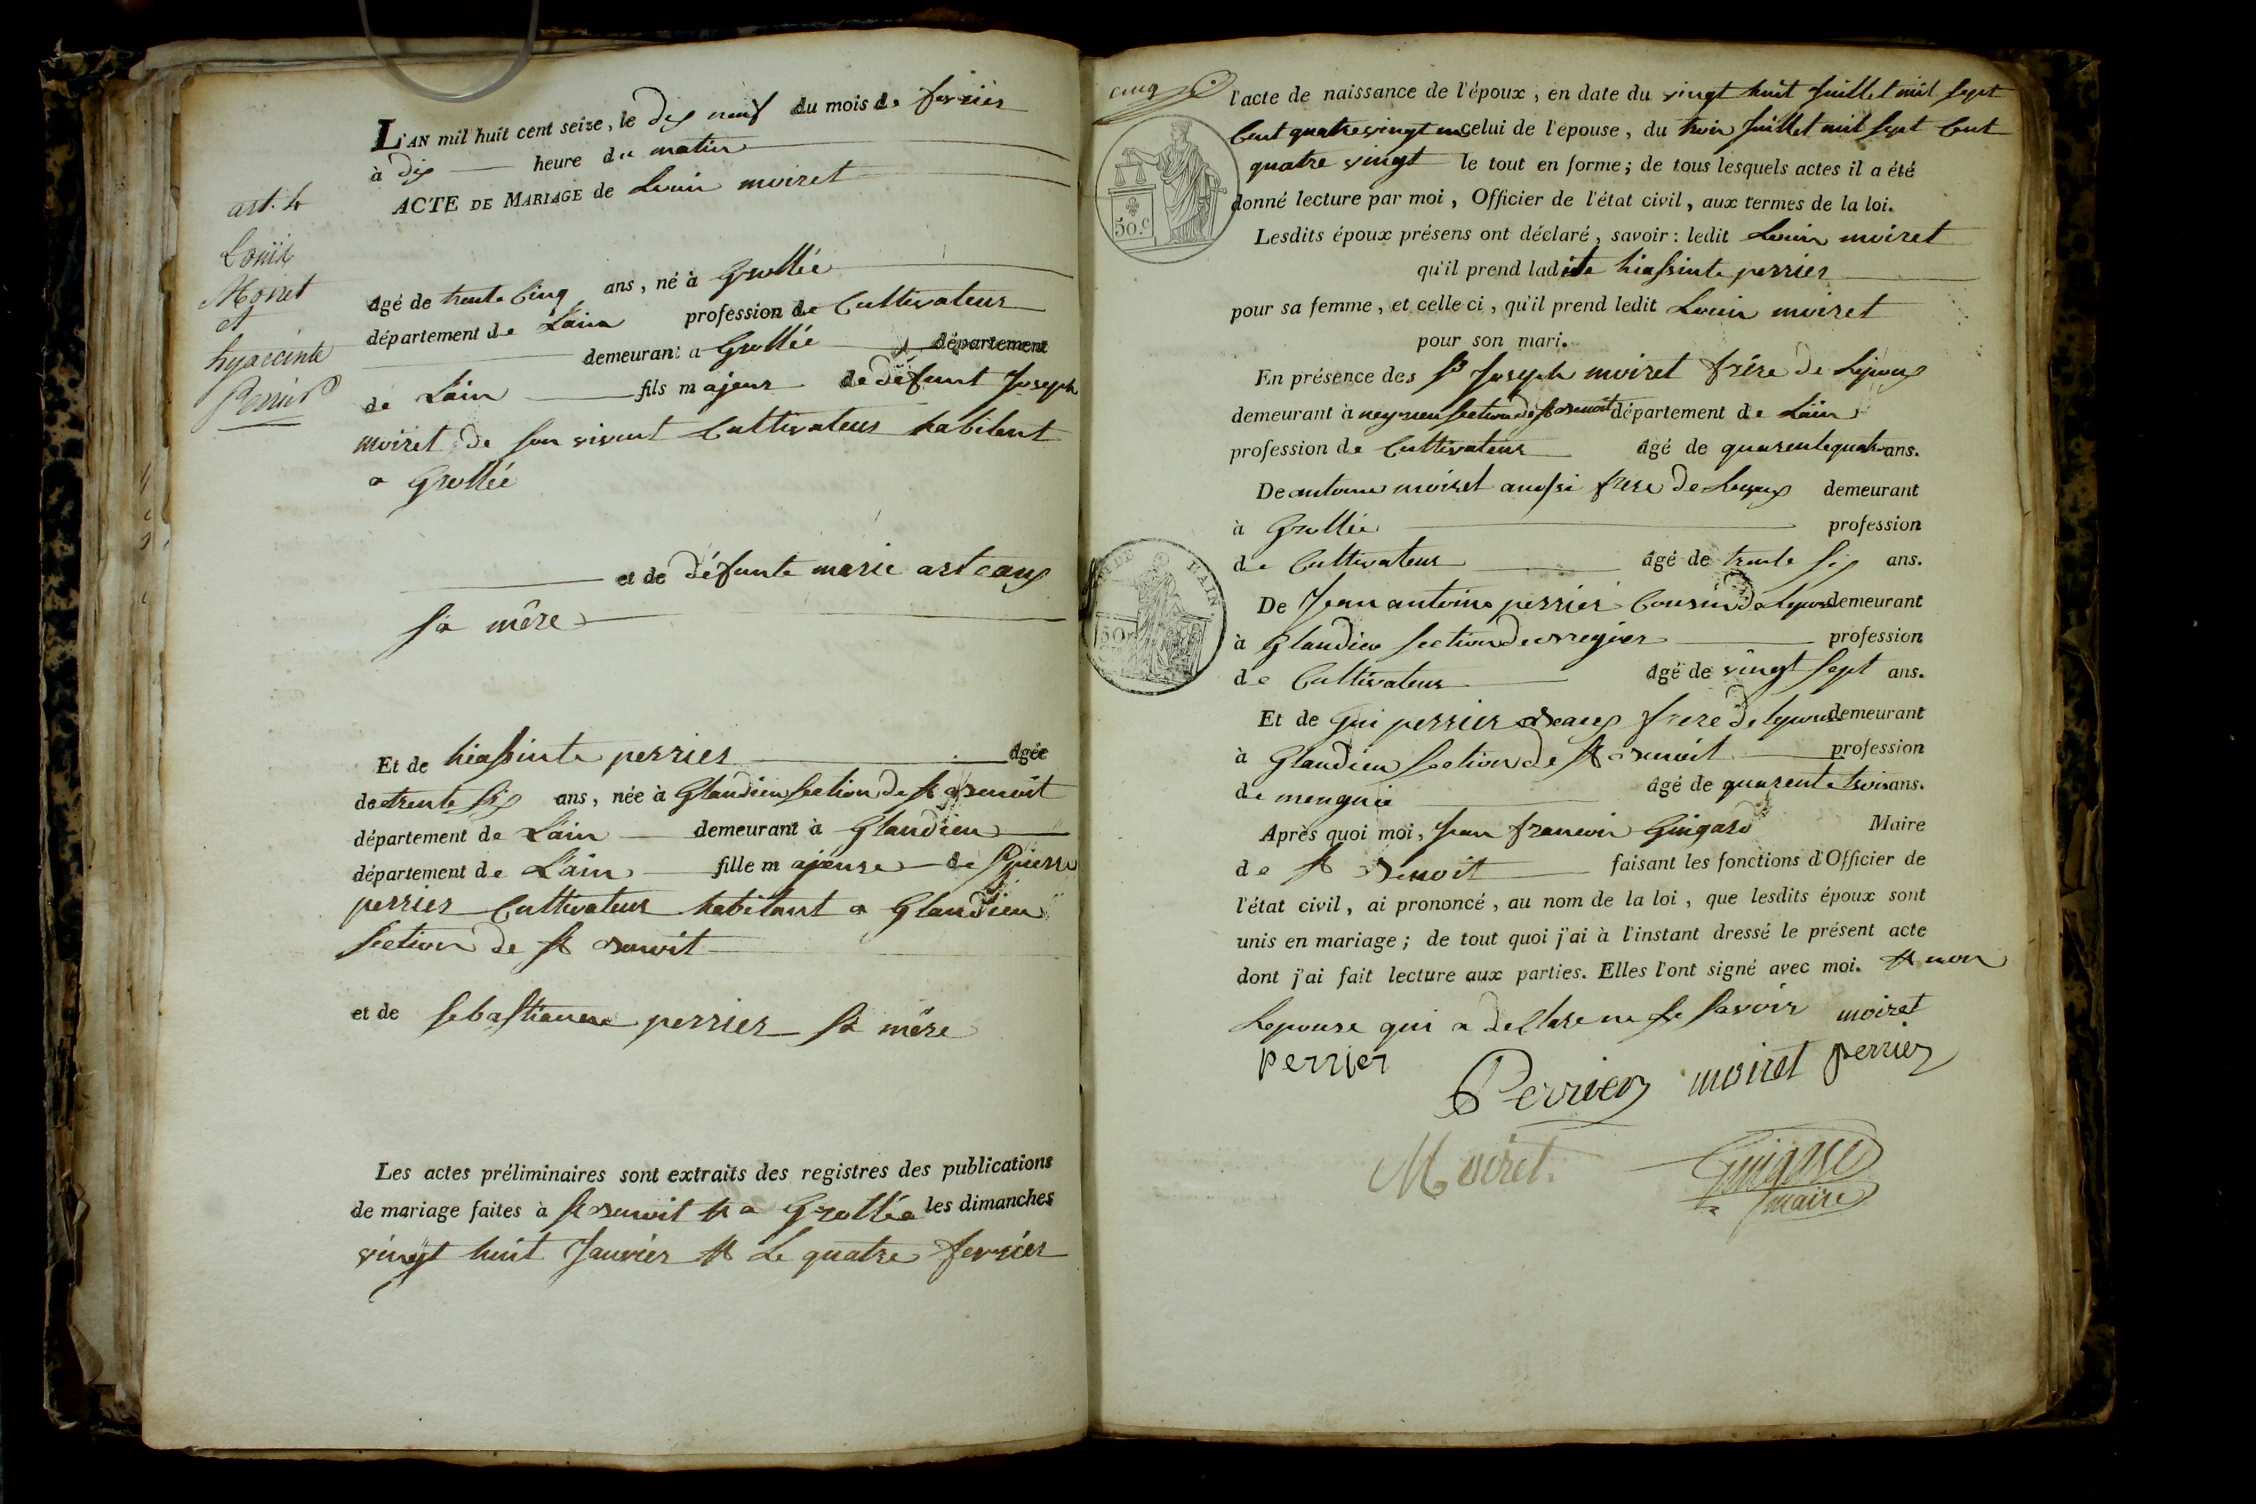 L'AN mil huit cent seize, le dix neuf du mois de fevrier
à dix heure du matin
ACTE DE MARIAGE de Louis moiret
art. 4
Louïs
Moiret
et
hyacinte
Perrier
âgé de trente Cinq ans, né à Grollée
département de L'ain profession de Cultivateur
demeurant a Grollée département
de L'ain fils majeur de défunt Joseph
moiret de son vivent Cultivateur habitent
a Grollée
et de défunte marie
sa mère
Et de hiassinte perrier âgée
de trente six ans, née à Glandieu section de st Benoit
département de L'ain demeurant à Glandieu
département de L'ain fille majeure de pierre
perrier Cultivateur habitant a Glandieu
section de st Benoit
et de sebastienne perrier sa mère
Les actes préliminaires sont extraits des registres des publications
de mariage faites à st Benoit et a Grollée les dimanches
vingt huit Janvier et Le quatre fevrier
cinq
l'acte de naissance de l'époux, en date du vingt huit Juillet mil sept
Cent quatre vingt un celui de l'épouse, du trois Juillet mil sept Cent
quatre vingt le tout en forme; de tous lesquels actes il a été
donné lecture par moi, Officier de l'état civil, aux termes de la loi.
50.c
Lesdits époux présens ont déclaré, savoir: ledit Louis moiret
qu'il prend ladite hiassinte perrier
pour sa femme, et celle ci, qu'il prend ledit Louis moiret
pour son mari.
En présence des Sr Joseph moiret frère de Lepoux
demeurant à section de st Benoit département de L'ain
profession de Cultivateur âgé de quarente quatre ans.
De antoine moiret aussi frere de Lepoux demeurant
à Grollée profession
de Cultivateur âgé de trente six ans.
DE L'AIN
50
De Jean antoine perrier Cousin de lepouse demeurant
à Glandieu section de Bregnier profession
de Cultivateur âgé de vingt sept ans.
Et de perrier frere de lepouse demeurant
à Glandieu section de st Benoit profession
de âgé de quarente trois ans.
Après quoi moi, Jean francois Guigard Maire
de st Benoit faisant les fonctions d'Officier de
l'état civil, ai prononcé, au nom de la loi, que lesdits époux sont
unis en mariage; de tout quoi j'ai à l'instant dressé le présent acte
dont j'ai fait lecture aux parties. Elles l'ont signé avec moi. et non
Lepouse qui a declare ne le savoir moiret
perrier Perrier moiret perrier
Moiret. Guigard
maire